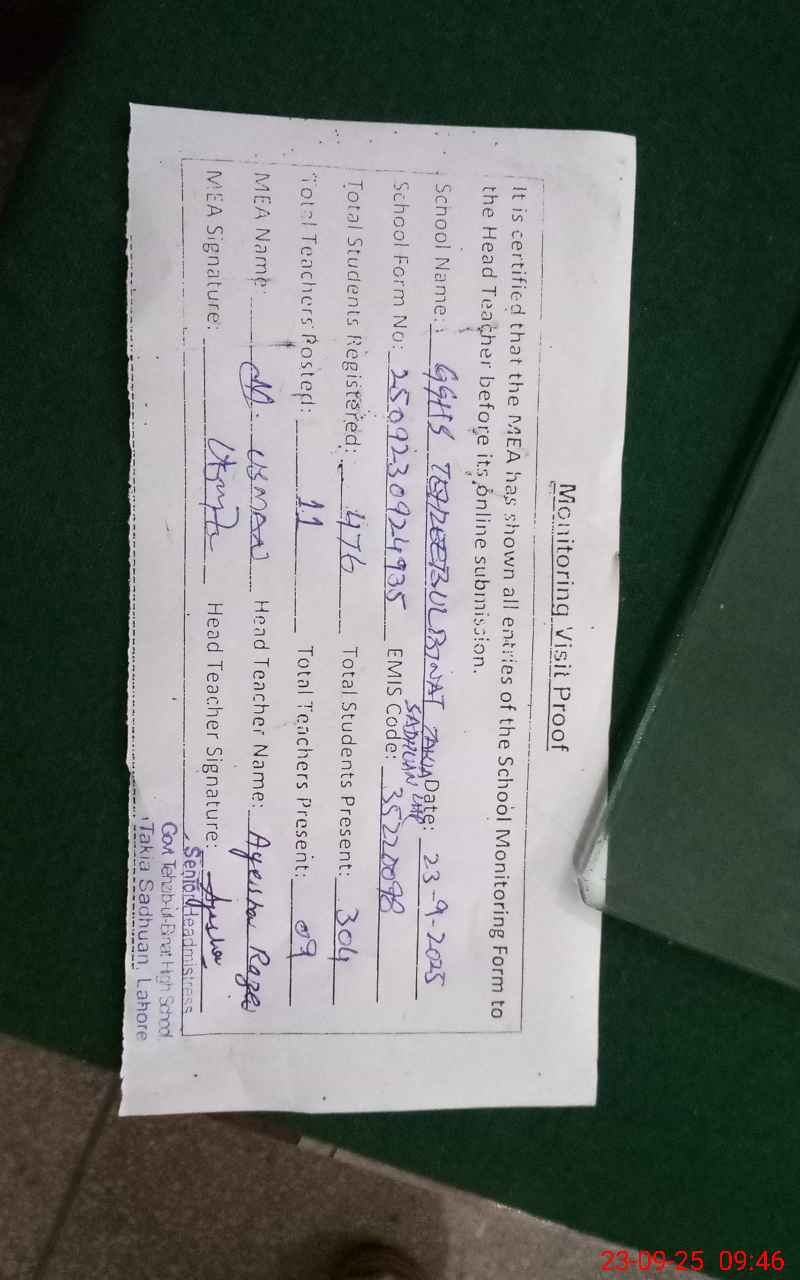 Monitoring Visit Proof
It is certified that the MEA has shown all entries of the School Monitoring Form to
the Head Teacher before its online submission.
School Name: GGHS TEHZEEBULBINAT TAKIA Date: 23-9-2025
SADHUAN LHR
School Form No: 2509230924935 EMIS Code: 35220098
Total Students Registered: 476 Total Students Present: 304
Total Teachers Posted: 11 Total Teachers Present: 09
MEA Name: M. USMAN Head Teacher Name: Ayesha Raza
MEA Signature: Head Teacher Signature: Ayesha
Senior Headmistress
Govt. Tehzib-ul-Binat High School
Takia Sadhuan, Lahore
23-09-25 09:46